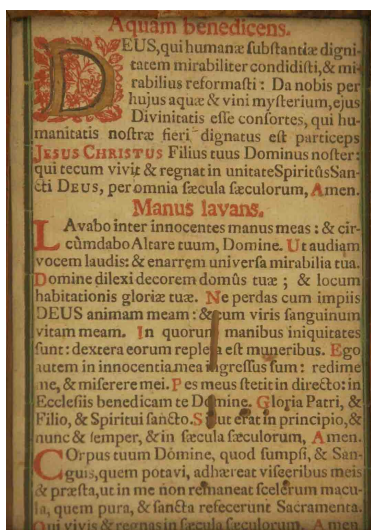 Aquam benedicens.
DEUS, qui humanæ ſubſtantiæ digni-
tatem mirabiliter condidiſti, & mi-
rabilius reformaſti : Da nobis per
hujus aquæ & vini myſterium, ejus
Divinitatis eſſe conſortes, qui hu-
manitatis noſtræ fieri dignatus eſt particeps
JESUS CHRISTUS Filius tuus Dominus noſter:
qui tecum vivit & regnat in unitate SpiritûsSan-
cti DEUS, per omnia ſæcula ſæculorum, Amen.
Manus lavans.
LAvabo inter innocentes manus meas : & cir-
cùmdabo Altare tuum, Domine. Ut audiam
vocem laudis: & enarrem univerſa mirabilia tua.
Domine dilexi decorem domûs tuæ ; & locum
habitationis gloriæ tuæ. Ne perdas cum impiis
DEUS animam meam : & cum viris ſanguinum
vitam meam. In quorum manibus iniquitates
ſunt : dextera eorum repleta eſt muneribus. Ego
autem in innocentia mea ingreſſus ſum : redime
me, & miſerere mei. Pes meus ſtetit in directo: in
Eccleſiis benedicam te Domine. Gloria Patri, &
Filio, & Spiritui ſancto. Sicut erat in principio, &
nunc & ſemper, & in ſæcula ſæculorum, Amen.
COrpus tuum Dómine, quod ſumpſi, & San-
guis, quem potavi, adhæreat viſceribus meis
& præſta, ut in me non remaneat ſcelerum macu-
la, quem pura, & ſancta refecerunt Sacramenta.
Qui vivis & regnas in ſæcula ſæculorum. Amen